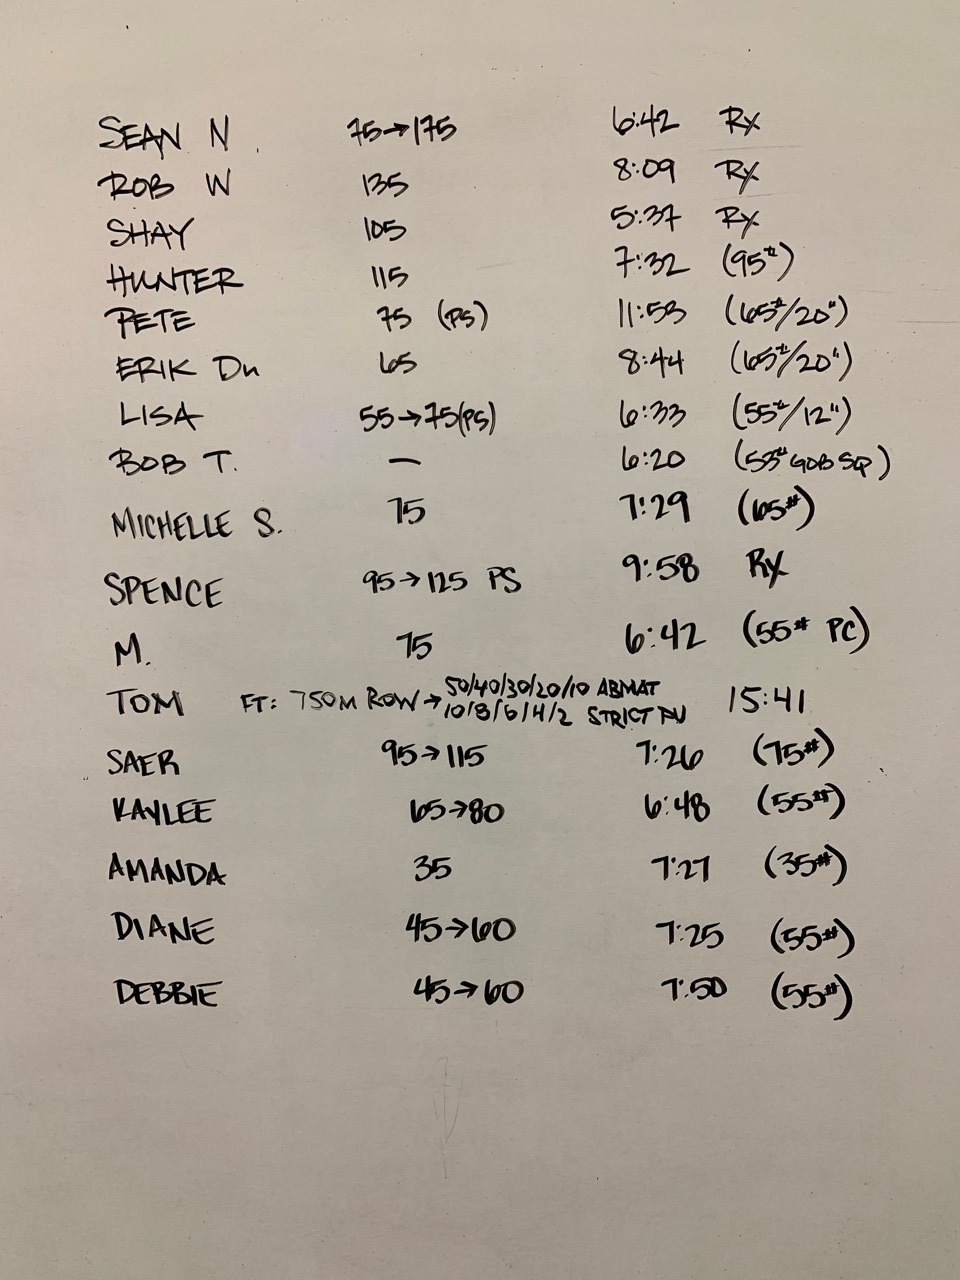 SEAN N 75→175 6:42 Rx
ROB W 135 8:09 Rx
SHAY 105 5:37 Rx
HUNTER 115 7:32 (95#)
PETE 75 (PS) 11:53 (65#/20")
ERIK Du 65 8:44 (65#/20")
LISA 55→75(PS) 6:33 (55#/12")
BOB T. — 6:20 (53# GOB SQ)
MICHELLE S. 75 7:29 (65#)
SPENCE 95→125 PS 9:58 RX
M. 75 6:42 (55# PC)
TOM FT: 750M ROW→ 50/40/30/20/10 ABMAT 15:41
10/8/6/4/2 STRICT PU
SAER 95→115 7:26 (75#)
KAYLEE 65→80 6:48 (55#)
AMANDA 35 7:27 (35#)
DIANE 45→60 7:25 (55#)
DEBBIE 45→60 7:50 (55#)